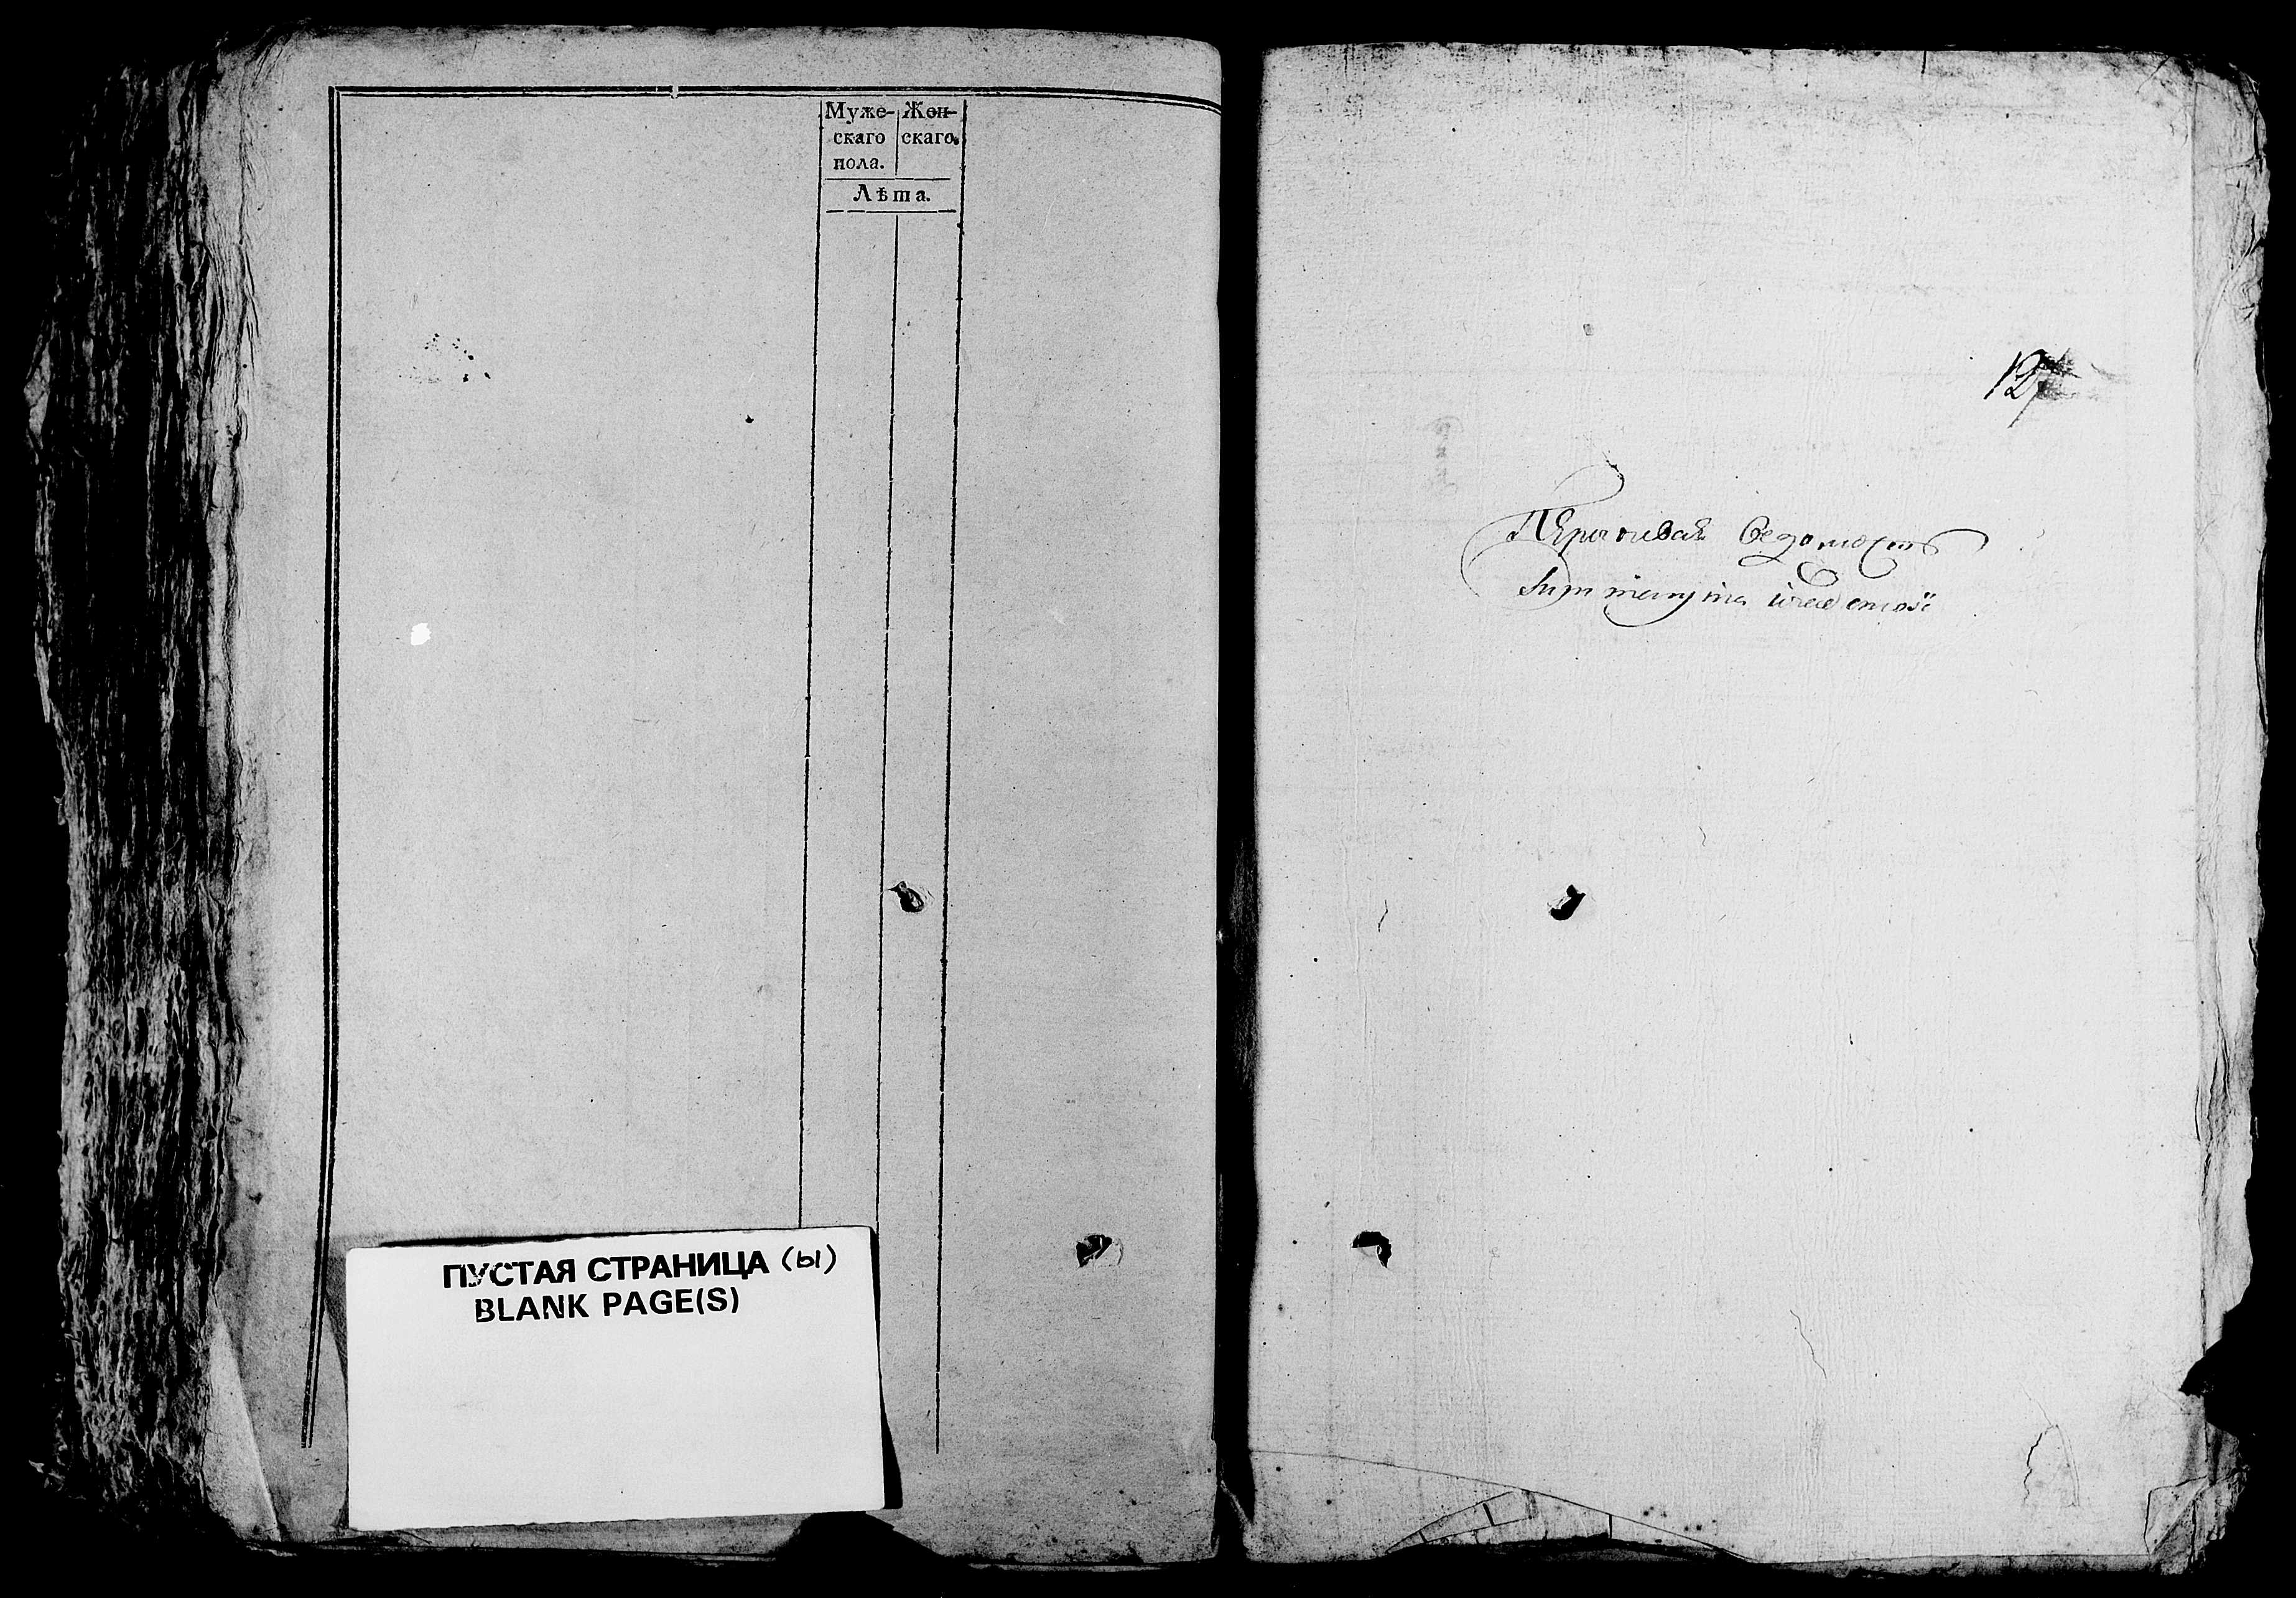 Муже- Жен-
скаго скаго.
пола.
Лѣта.
ПУСТАЯ СТРАНИЦА (ы)
BLANK PAGE(S)
127
Перечневая ведомость